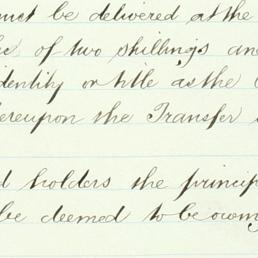 must be delivered at the
of two shillings and
identity or title as the
hereupon the Transfer
holders the princip
be deemed to be owing